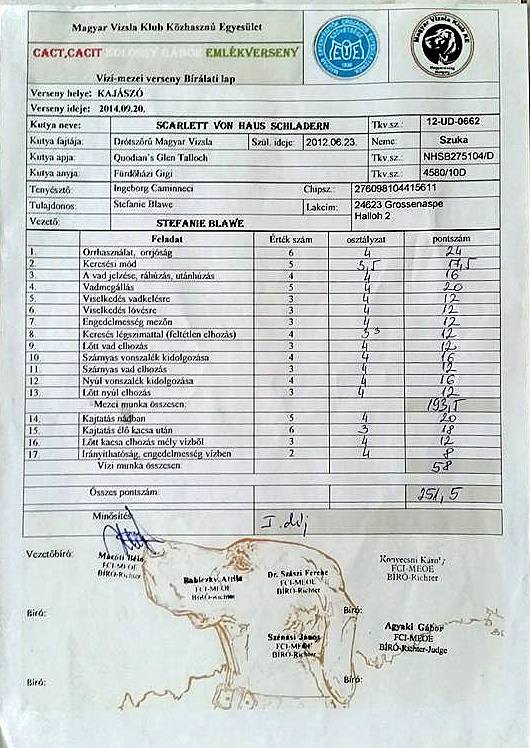 Magyar Vizsla Klub Közhasznú Egyesület
CACT,CACIT KOLOSSY GÁBOR EMLÉKVERSENY
Vízi-mezei verseny Bírálati lap
Verseny helye: KAJÁSZÓ
Verseny ideje: 2014.09.20.
Kutya neve: SCARLETT VON HAUS SCHLADERN Tkv.sz.: 12-UD-0662
Kutya fajtája: Drótszőrű Magyar Vizsla Szül. ideje: 2012.06.23. Neme: Szuka
Kutya apja: Quodian's Glen Talloch Tkv.sz.: NHSB275104/D
Kutya anyja: Fürdőházi Gigi Tkv.sz.: 4580/10D
Tenyésztő: Ingeborg Caminneci Chipsz.: 276098104415611
Tulajdonos: Stefanie Blawe Lakcím: 24623 Grossenaspe
Halloh 2
Vezető: STEFANIE BLAWE
Feladat Érték szám osztályzat pontszám
1. Orrhasználat, orrjóság 6 4 24
2. Keresési mód 5 3,5 17,5
3. A vad jelzése, ráhúzás, utánhúzás 4 4 16
4. Vadmegállás 5 4 20
5. Viselkedés vadkelésre 3 4 12
6. Viselkedés lövésre 3 4 12
7. Engedelmesség mezőn 3 4 12
8. Keresés légszimattal (feltétlen elhozás) 4 3 12
9. Lőtt vad elhozás 3 4 12
10. Szárnyas vonszalék kidolgozása 4 4 16
11. Szárnyas vad elhozás 3 4 12
12 Nyúl vonszalék kidolgozása 4 4 16
13. Lőtt nyúl elhozás 3 4 12
Mezei munka összesen: 193,5
14. Kajtatás nádban 5 4 20
15. Kajtatás élő kacsa után 6 3 18
16. Lőtt kacsa elhozás mély vízből 3 4 12
17. Irányíthatóság, engedelmesség vízben 2 4 8
Vízi munka összesen: 58
Összes pontszám: 251,5
Minősítés: I. díj
Vezetőbíró: Micóti Béla
FCI-MEOE
BÍRÓ-Richter
Konyecsni Károly
FCI-MEOE
BÍRÓ-Richter
Babiczky Attila
FCI-MEOE
BÍRÓ-Richter
Dr. Szászi Ferenc
FCI-MEOE
BÍRÓ-Richter
Bíró: Bíró:
Szénási János
FCI-MEOE
BÍRÓ-Richter
Agyaki Gábor
FCI-MEOE
BÍRÓ-Richter-Judge
Bíró: Bíró: